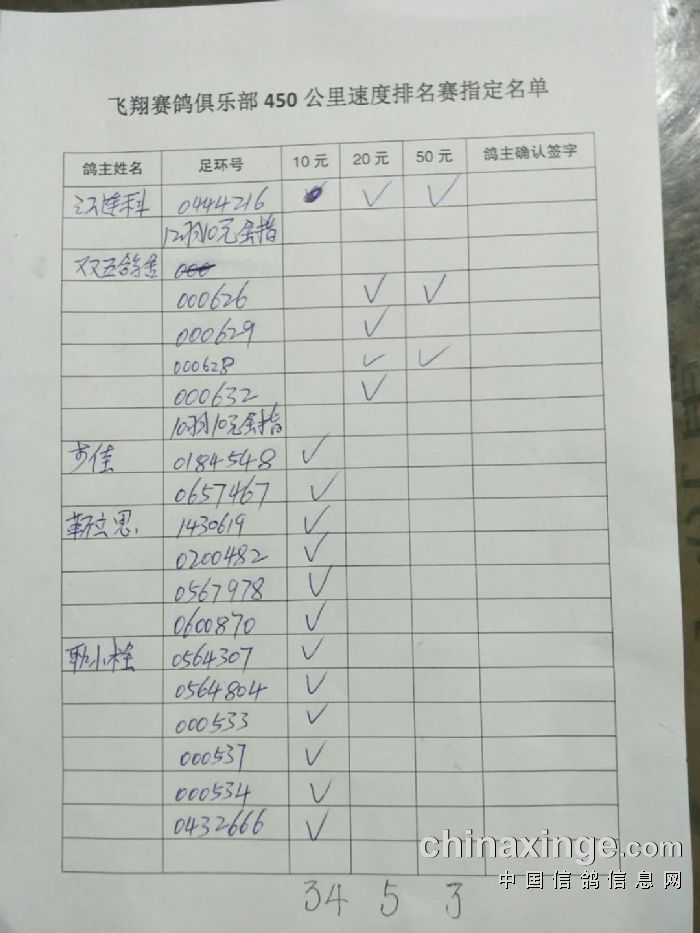 飞翔赛鸽俱乐部 450 公里速度排名赛指定名单
鸽主姓名 足环号 10 元 20 元 50 元 鸽主确认签字
江连科 0444216 ✓ ✓
12羽10元全指
双五鸽舍
000626 ✓ ✓
000629 ✓
000628 ✓ ✓
000632 ✓
10羽10元全指
佳 0184548 ✓
0657467 ✓
靳立恩 1430619 ✓
0200482 ✓
0567978 ✓
0600870 ✓
耿小栓 0564307 ✓
0564804 ✓
000533 ✓
000537 ✓
000534 ✓
0432666 ✓
34 5 3
chinaxinge.com
中国信鸽信息网